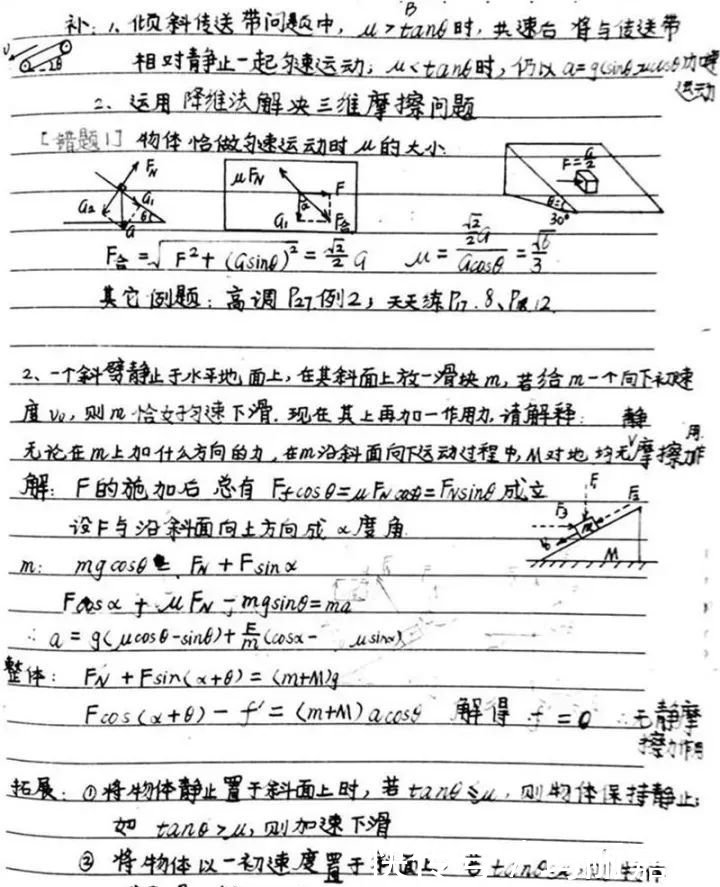 补:1、倾斜传送带问题中, μ>tanθ时, 共速后 将与传送带
B
相对静止一起匀速运动; μ<tanθ时, 仍以 a=g(sinθ-μcosθ)加速
运动
2、运用降维法解决三维摩擦问题
[错题1] 物体恰做匀速运动时μ的大小
FN G1 G2 θ G
μFN F G1 F合
F=G/2 θ= 30°
F合=√(F²+(Gsinθ)²)=√2/2 G μ=(√2/2 G)/(Gcosθ)=√6/3
其它例题: 高调P27例2; 天天练P17.8、P18.12.
2、一个斜劈静止于水平地面上, 在其斜面上放一滑块m, 若给m一个向下初速
度v₀, 则m恰好匀速下滑. 现在其上再加一作用力, 请解释:
静 用
无论在m上加什么方向的力, 在m沿斜面向下运动过程中, M对地均无摩擦力作
解: F的施加后 总有 Ff cosθ=μFN cosθ=FN sinθ 成立
设F与沿斜面向上方向成α度角
F1 F2 F3 m v₀ M
m: mgcosθ = FN + Fsinα
Fcosα + μFN - mgsinθ = ma
∴ a = g(μcosθ-sinθ)+F/m(cosα- μsinα)
整体: FN + Fsin(α+θ) = (m+M)g
Fcos(α+θ) - f' = (m+M)acosθ 解得 f = 0 ∴无静摩
擦力作用
拓展: ①将物体静止置于斜面上时, 若tanθ≤μ, 则物体保持静止;
如 tanθ>μ, 则加速下滑
② 将物体以一初速度置于斜面上 若tanθ 则物体